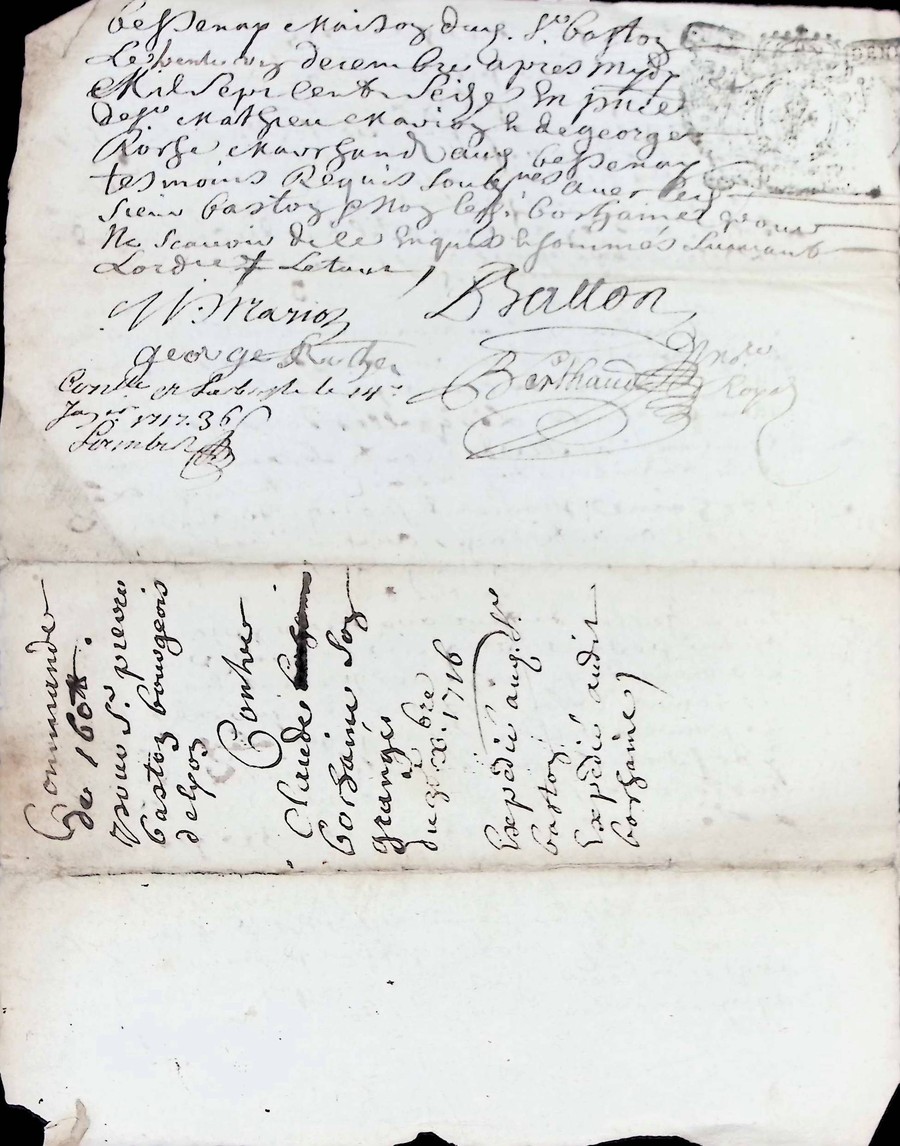 bessenay Maison dud. Sr. baston
Le vente ung decembre apres mydy
Mil Sept cent Seize En pnce
de Sre Mathieu Marion & de george
Rosse Marchand aud. bessenay
tesmoins Requis Soubsnes avec led.
Sieur baston & Non led. borhaine pour
Ne Scavoir de ce Enquis & sommés Suivant
Lordre
W: Marion
BBatton
george
Berthaud Nore Royal
Contlle a Larbresle le 14e
Janer 1717. 36
Commande
de 160tt.
pour Sr. pierre
baston bourgeois
de lyon
Contre
Claude
borhaine Son
granger
du 21 xbre 1716
Expedié aud. Sr
baston
Expedié audit
borhaine